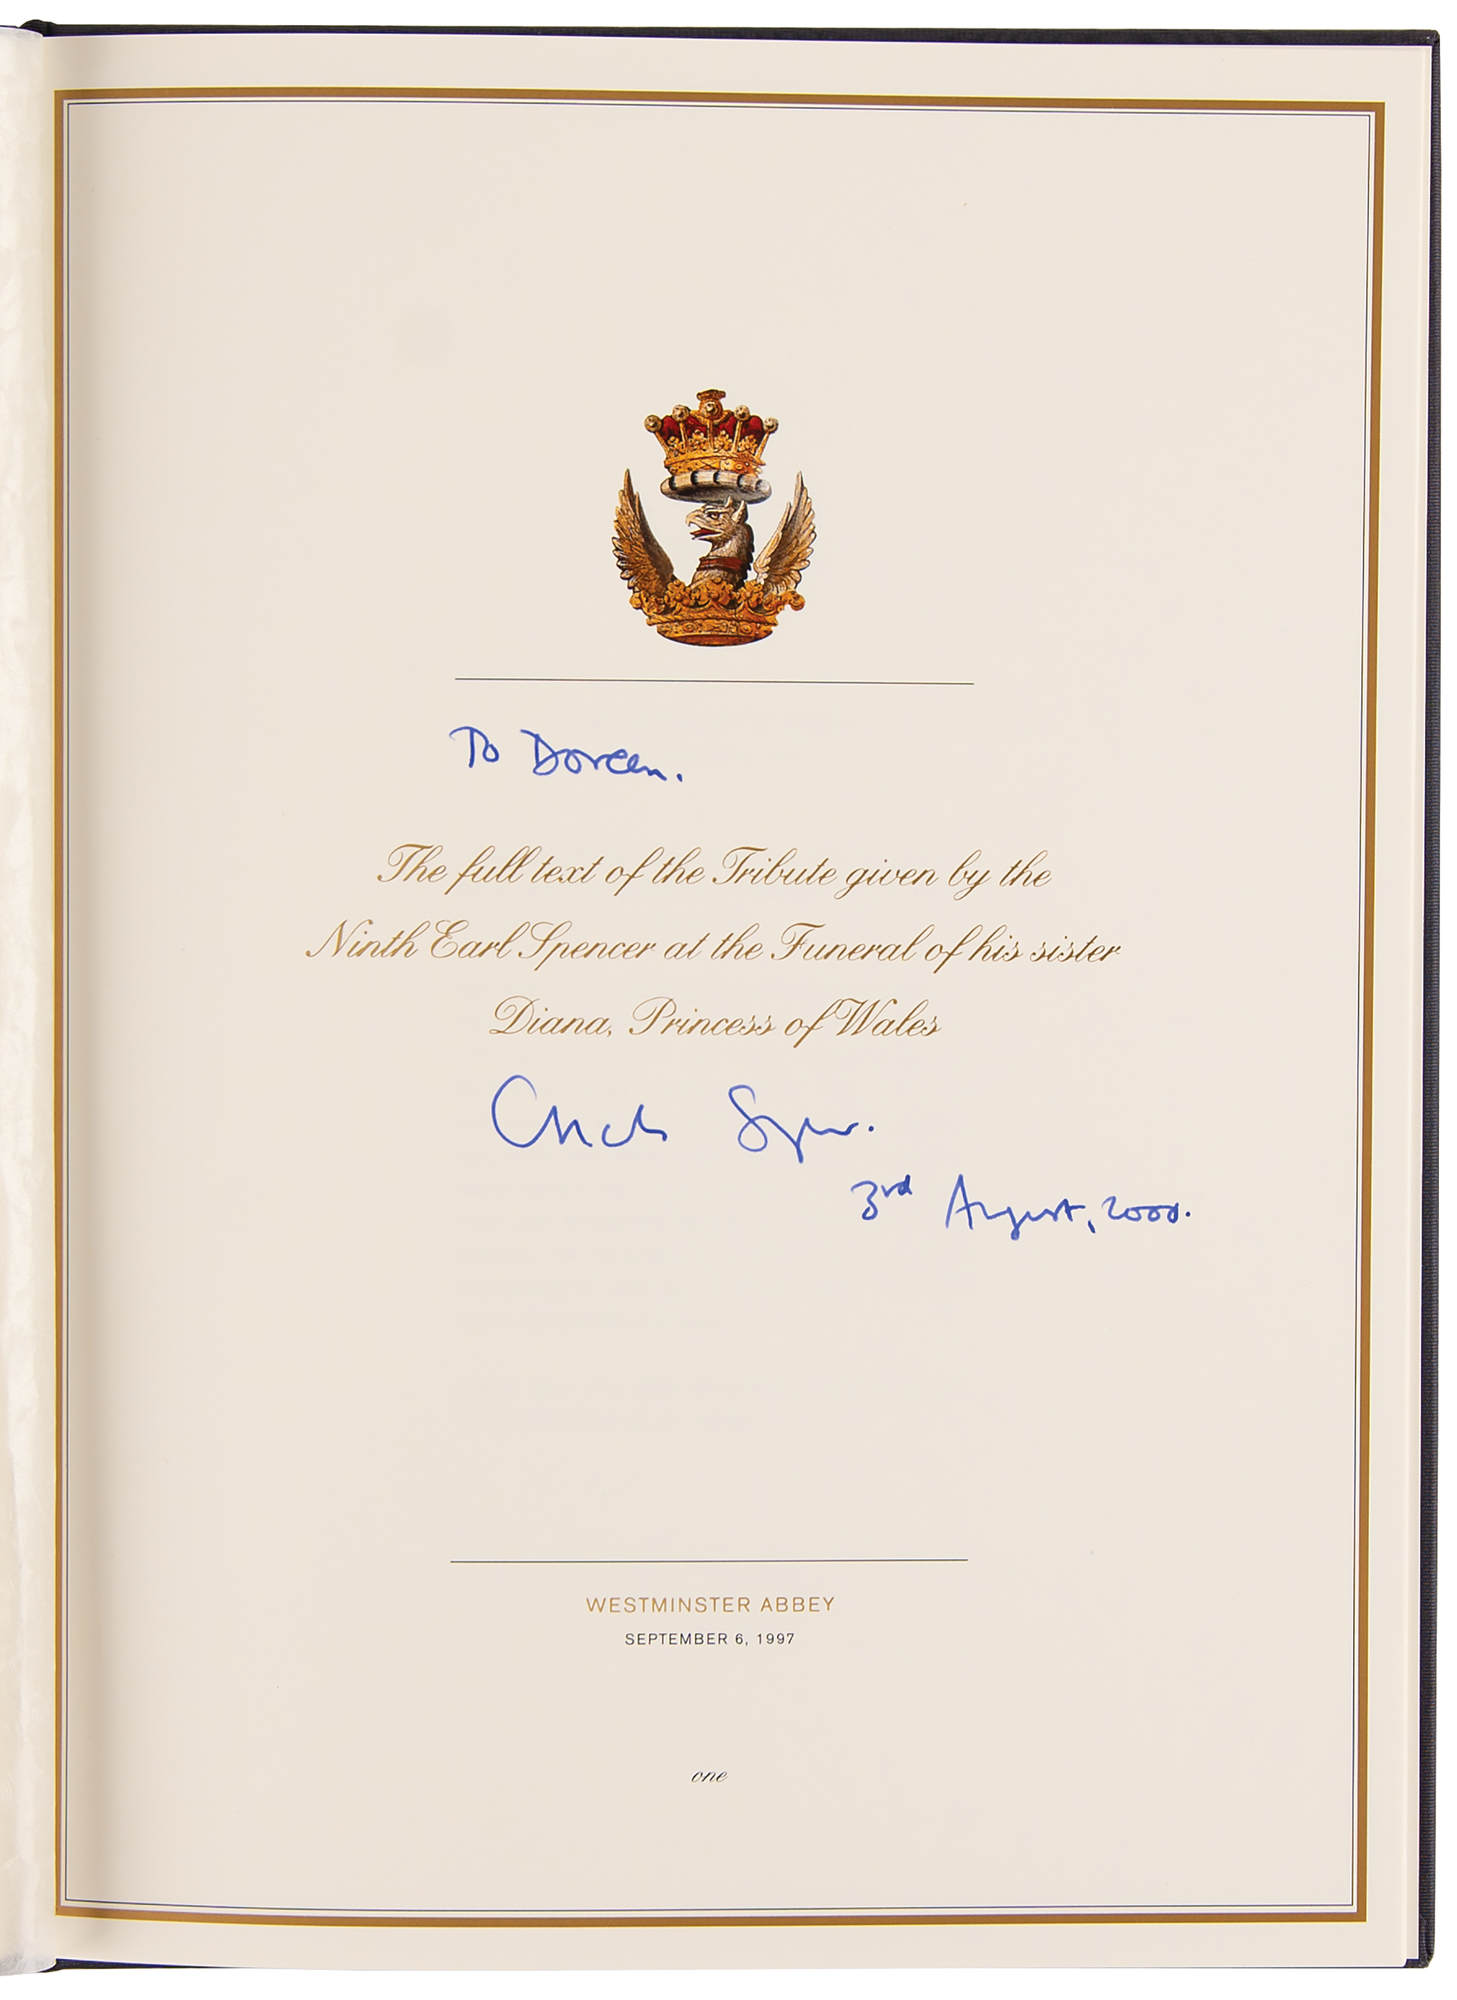 To Doreen.
The full text of the Tribute given by the
Ninth Earl Spencer at the Funeral of his sister
Diana, Princess of Wales
Charles Spencer.
3rd August, 2000.
WESTMINSTER ABBEY
SEPTEMBER 6, 1997
one